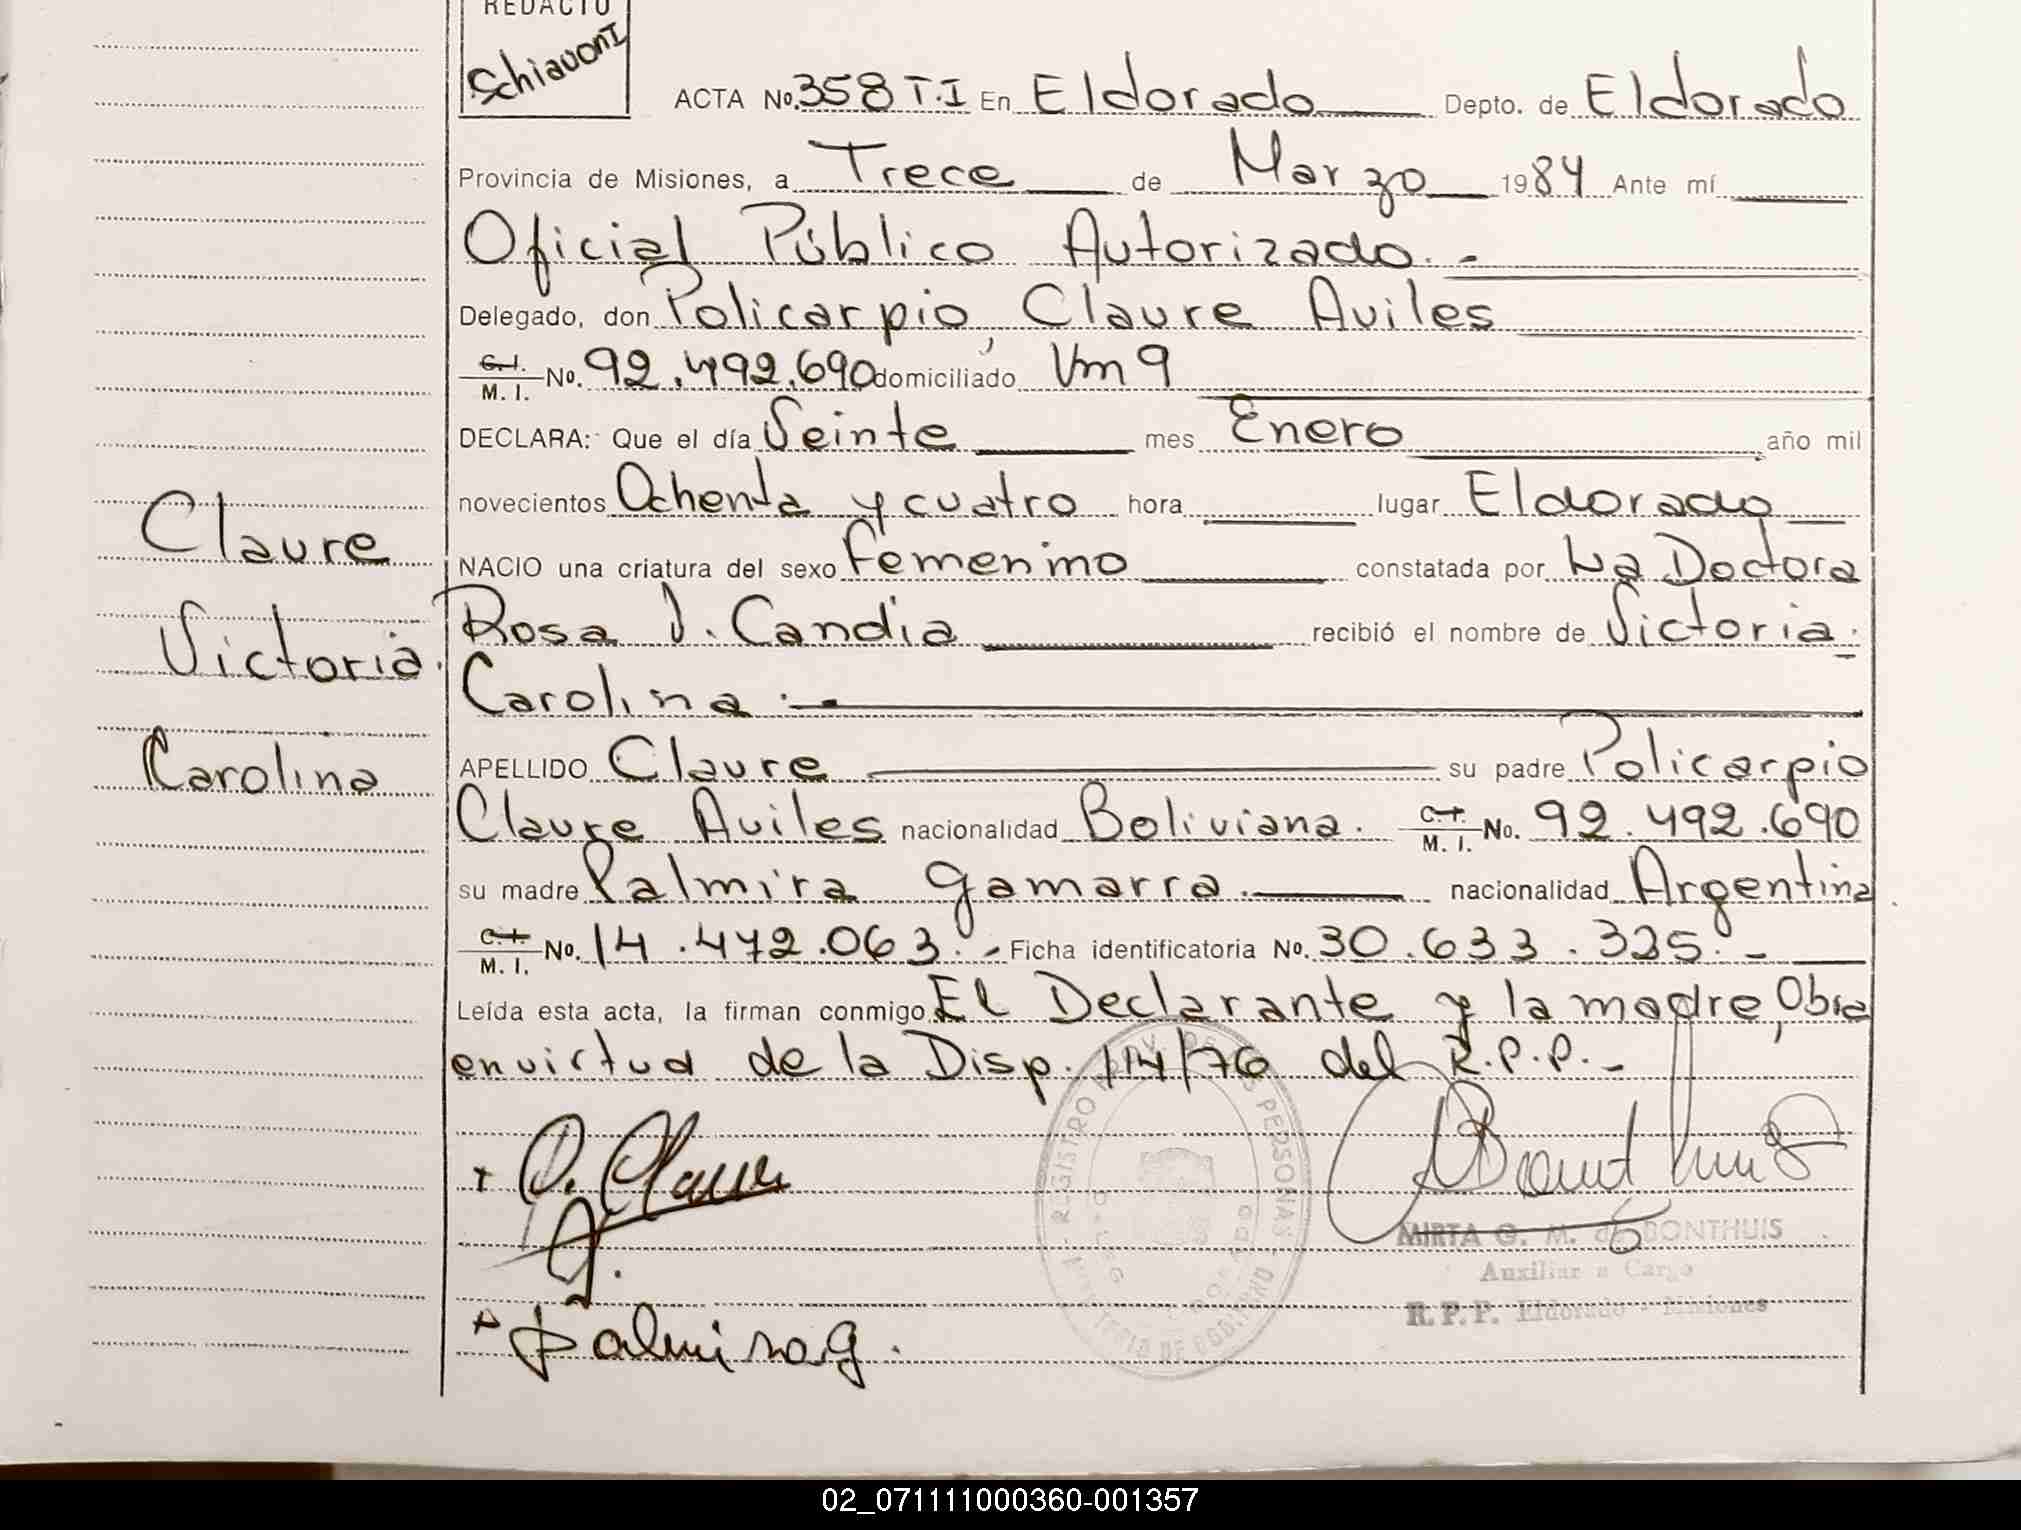 REDACTO
Schiavoni
ACTA No. 358 T.I En Eldorado Depto. de Eldorado
Provincia de Misiones, a Trece de Marzo 1984 Ante mí
Oficial Público Autorizado.-
Delegado, don Policarpio, Claure Aviles
C.I. M. I. No. 92.492.690 domiciliado Vm 9
DECLARA: Que el día Veinte mes Enero año mil
novecientos Ochenta y cuatro hora lugar Eldorado
Claure
NACIO una criatura del sexo Femenino constatada por La Doctora
Victoria.
Rosa J. Candia recibió el nombre de Victoria.
Carolina.-
Carolina
APELLIDO Claure su padre Policarpio
Claure Aviles nacionalidad Boliviana. C.I. M. I. No. 92.492.690
su madre Palmira Gamarra. nacionalidad Argentina.
C.I. M. I. No. 14.472.063.- Ficha identificatoria No. 30.633.325.-
Leída esta acta, la firman conmigo El Declarante y la madre, Obra
en virtud de la Disp. 114/76 del R.P.P.-
P. Claure
A.
Palmira g.
MIRTA G. M. de BONTHUIS
Auxiliar a Cargo
R. P. P. Eldorado - Misiones
02_071111000360-001357